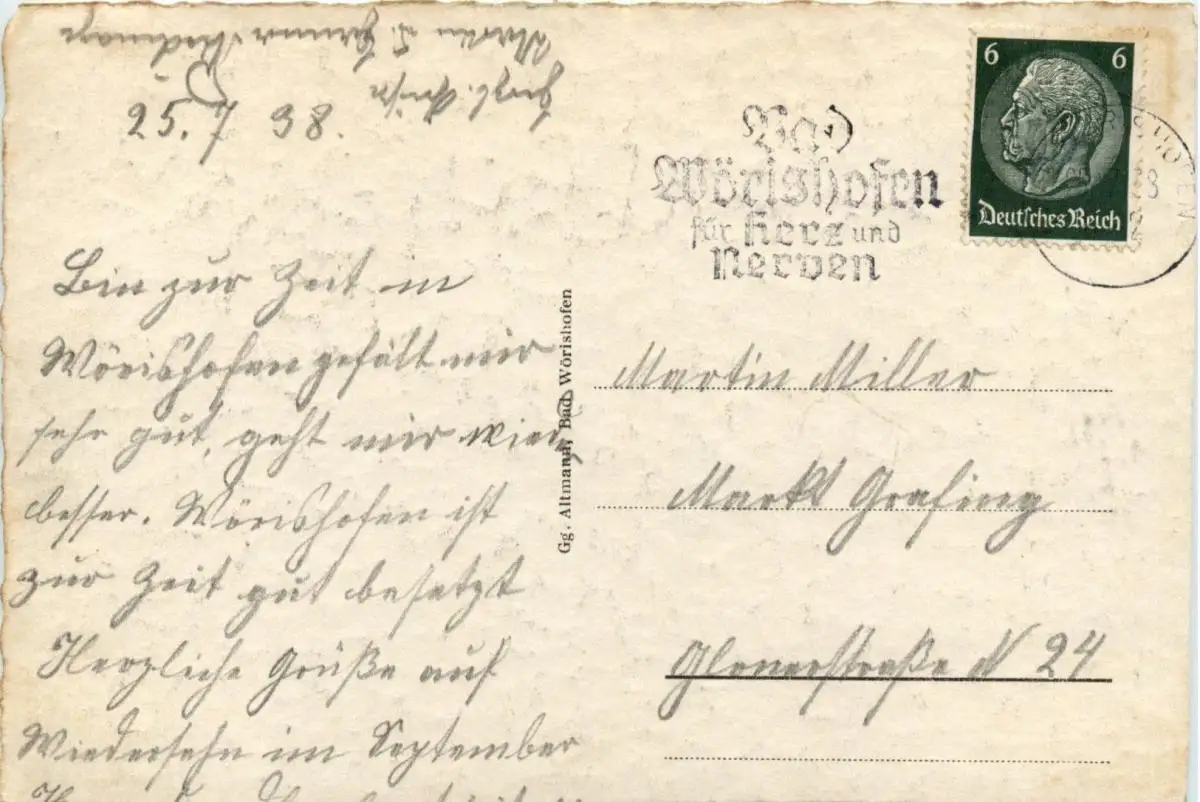 25. 7 38.
Bin zur Zeit in
Wörishofen gefällt mir
sehr gut, geht mir wieder
besser. Wörishofen ist
zur Zeit gut besetzt
Herzliche Grüße auf
Wiedersehn im September
Gg. Altmann, Bad Wörishofen
Bad
Wörishofen
für Herz und
Nerven
6 6
Deutsches Reich
Martin Miller
Markt Grafing
Glonnerstraße N 24